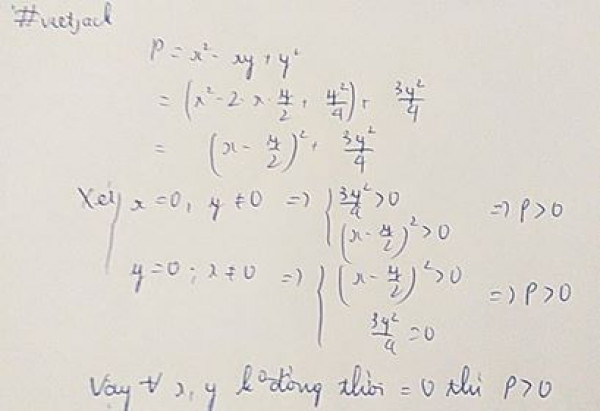 #vietjack
P = x² - xy + y²
= (x² - 2·x·y/2 + y²/4) + 3y²/4
= (x - y/2)² + 3y²/4
Xét x = 0, y ≠ 0 => { 3y²/4 > 0 => P > 0
(x - y/2)² > 0
y = 0 ; x ≠ 0 => { (x - y/2)² > 0 => P > 0
3y²/4 = 0
Vậy ∀ x, y k° đồng thời = 0 thì P > 0